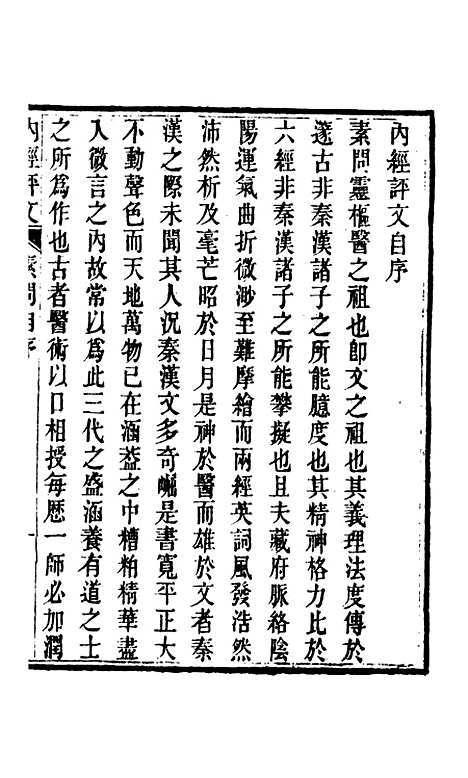 內經評文自序
素問靈樞醫之祖也即文之祖也其義理法度傳於
邃古非秦漢諸子之所能臆度也其精神格力比於
六經非秦漢諸子之所能攀擬也且夫藏府脈絡陰
陽運氣曲折微渺至難摩繪而兩經英詞風發浩然
沛然析及毫芒昭於日月是神於醫而雄於文者秦
漢之際未聞其人況秦漢文多奇崛是書寬平正大
不動聲色而天地萬物已在涵葢之中糟粕精華盡
入微言之內故常以爲此三代之盛涵養有道之士
之所爲作也古者醫術以口相授每歷一師必加潤
內經評文 素問自序 一